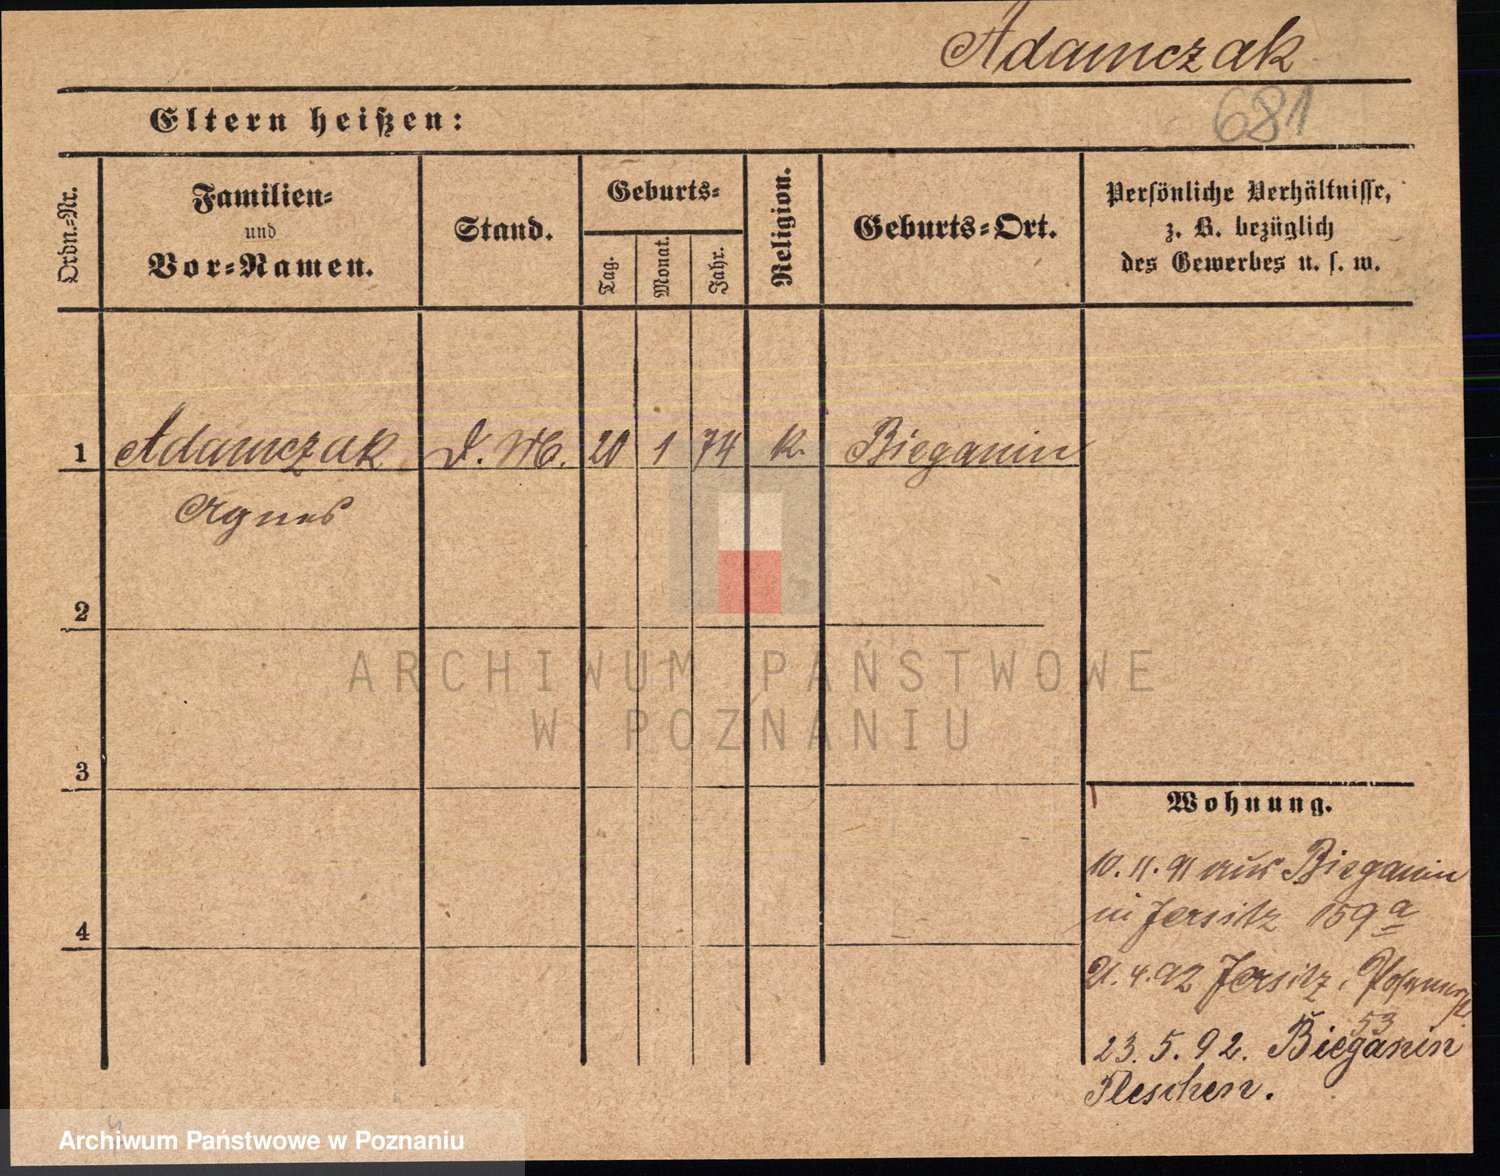 Adamczak
681
Eltern heißen:
Ordn.-Nr.
Familien-
und
Vor-Namen.
Stand.
Geburts-
Tag.
Monat.
Jahr.
Religion.
Geburts-Ort.
Persönliche Verhältnisse,
z. B. bezüglich
des Gewerbes u. s. w.
1 Adamczak D. M. 20 1 74 k. Bieganin
Agnes
2
ARCHIWUM PAŃSTWOWE
W POZNANIU
3
Wohnung.
10. 11. 91 aus Bieganin
in Jersitz 159a
4
21. 4. 92 Jersitz,
53
23. 5. 92. Bieganin
Pleschen.
Archiwum Państwowe w Poznaniu